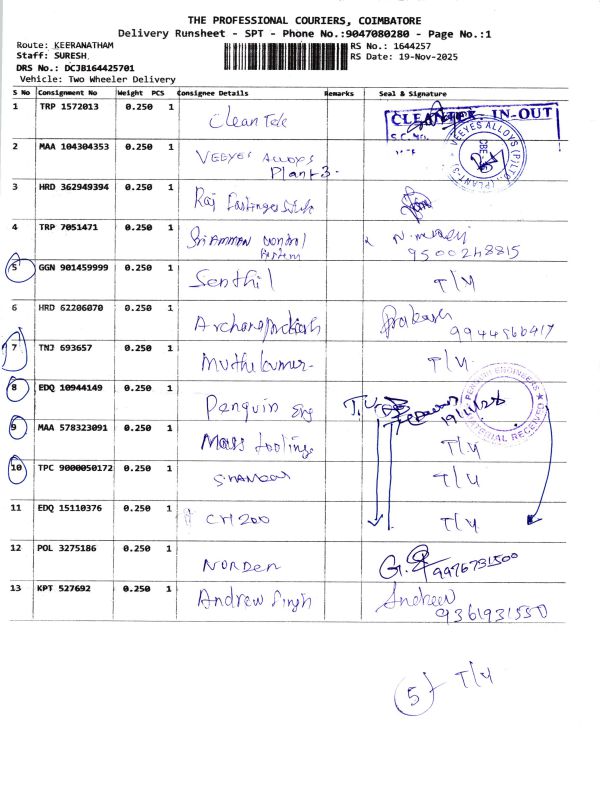 THE PROFESSIONAL COURIERS, COIMBATORE
Delivery Runsheet - SPT - Phone No.:9047080280 - Page No.:1
Route: KEERANATHAM RS No.: 1644257
Staff: SURESH, RS Date: 19-Nov-2025
DRS No.: DCJB164425701
Vehicle: Two Wheeler Delivery
S No Consignment No Weight PCS Consignee Details Remarks Seal & Signature
1 TRP 1572013 0.250 1 Clean Tek CLEANTEK IN-OUT
S.C. No.
VEEYES ALLOYS (P) LTD. (PLANT-3) CBE
2 MAA 104304353 0.250 1 VEEYES ALLOYS
Plant 3.
3 HRD 362949394 0.250 1 Raj
4 TRP 7051471 0.250 1 Sri Amman control N.
9500248815
5 GGN 901459999 0.250 1 Senthil T/4
6 HRD 62206070 0.250 1 Prakash
9944566417
7 TNJ 693657 0.250 1 Muthukumar- T/4
8 EDQ 10944149 0.250 1 Penguin Eng 19/11/25
PENGUIN ENGINEERS MATERIAL RECEIVED
9 MAA 578323091 0.250 1 Mass tooling T/4
10 TPC 9000050172 0.250 1 T/4
11 EDQ 15110376 0.250 1 CM 200 T/4
12 POL 3275186 0.250 1 NORDEN 9976731500
13 KPT 527692 0.250 1 Andrew Singh Andrew
9361931550
5 T/4